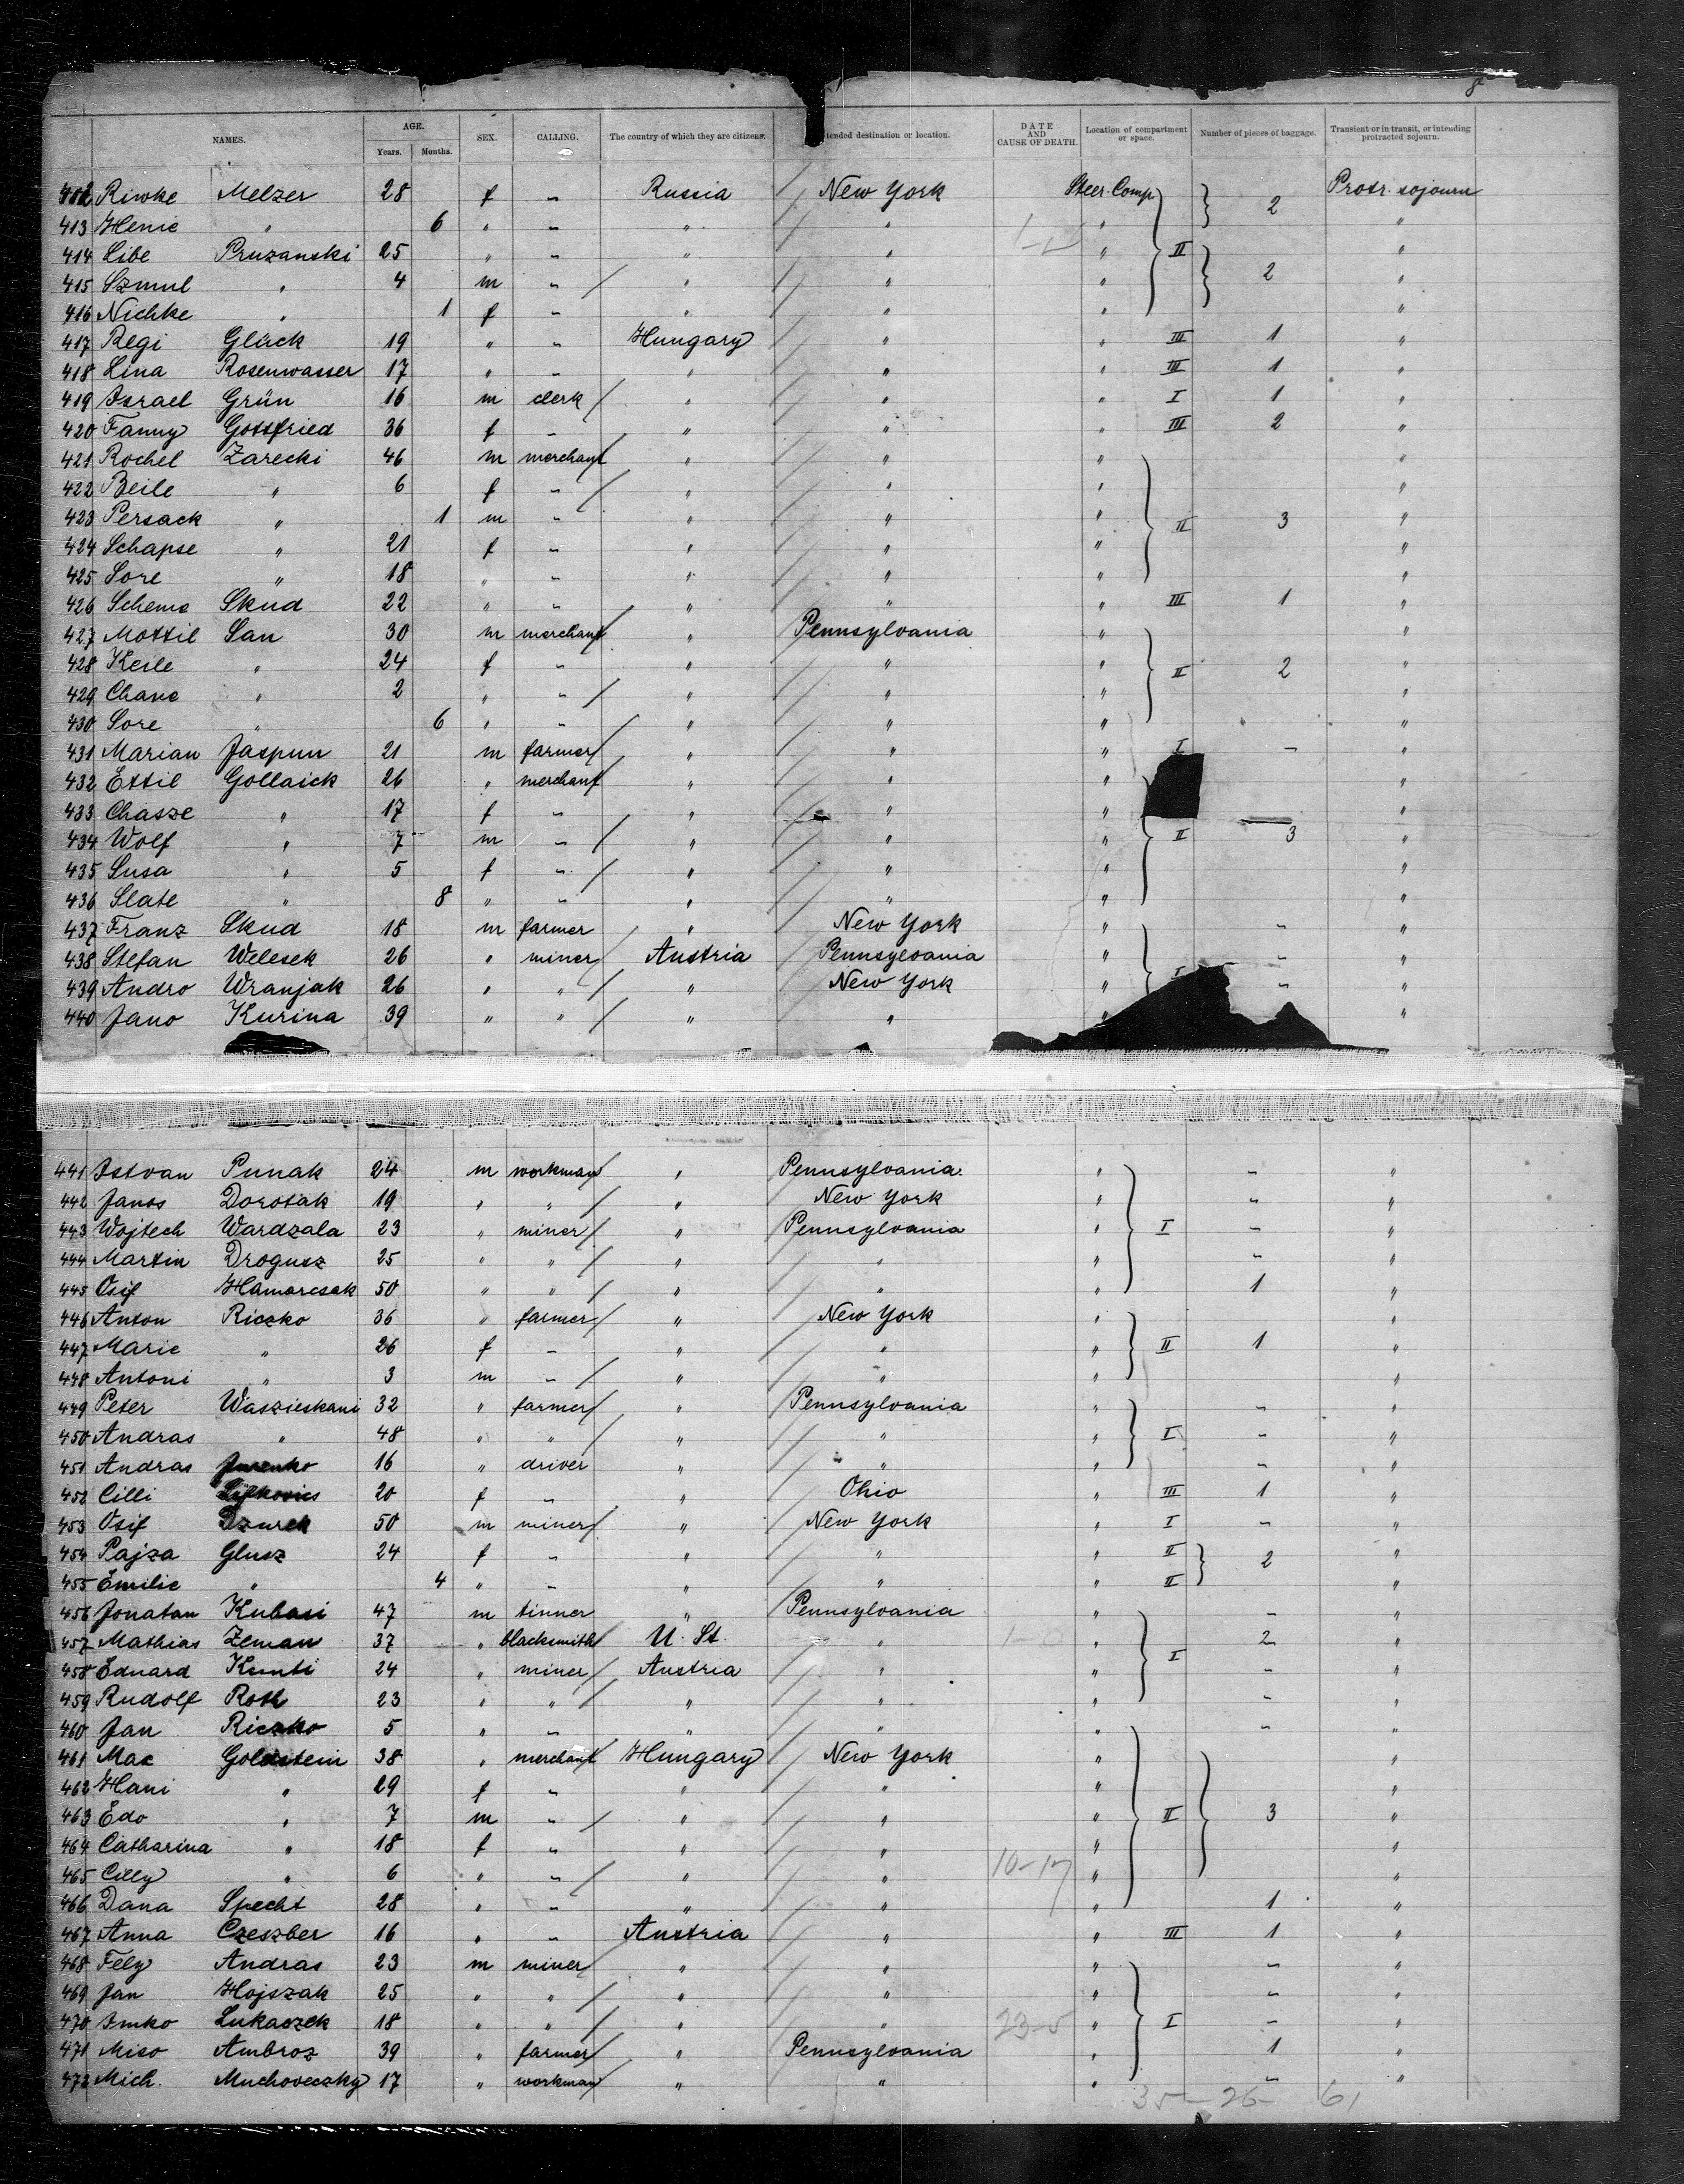 NAMES. AGE. Years. Months. SEX. CALLING. The country of which they are citizens. tended destination or location. DATE AND CAUSE OF DEATH. Location of compartment or space. Number of pieces of baggage. Transient or in transit, or intending protracted sojourn.
412 Riwke Melzer 28 f " Russia New York Steer. Comp. 2 Protr. sojourn
413 Henie " 6 " " " " " "
414 Libe Pruzanski 25 " " " " " II "
415 Szmul " 4 m " " " " 2 "
416 Nichke " 1 f " " " " "
417 Regi Glück 19 " " Hungary " " III 1 "
418 Lina Rosenwasser 17 " " " " " III 1 "
419 Israel Grün 16 m clerk " " " I 1 "
420 Fanny Gottfried 36 f " " " " III 2 "
421 Rochel Zarecki 46 m merchant " " " "
422 Beile " 6 f " " " " "
423 Persack " 1 m " " " " II 3 "
424 Schapse " 21 f " " " " "
425 Sore " 18 " " " " " "
426 Scheme Skud 22 " " " " " III 1 "
427 Mottil San 30 m merchant " Pennsylvania " "
428 Keile " 24 f " " " " II 2 "
429 Chane " 2 " " " " " "
430 Sore " 6 " " " " " "
431 Marian Jaspun 21 m farmer " " " I - "
432 Ettil Gollaick 26 " merchant " " " "
433 Chasze " 17 f " " " " "
434 Wolf " 7 m " " " " II 3 "
435 Susa " 5 f " " " " "
436 Slate " 8 " " " " " "
437 Franz Skud 18 m farmer " New York " - "
438 Stefan Welesek 26 " miner Austria Pennsylvania " - "
439 Andro Wranjak 26 " " " New York " - "
440 Jano Kurina 39 " " " " " "
441 Istvan Punak 24 m workman " Pennsylvania " - "
442 Janos Dorotak 19 " " " New York " - "
443 Wojtech Wardzala 23 " miner " Pennsylvania " I - "
444 Martin Drogusz 25 " " " " " - "
445 Osif Hamarcsak 50 " " " " " 1 "
446 Anton Riczko 36 " farmer " New York " "
447 Marie " 26 f - " " " II 1 "
448 Antoni " 3 m - " " " "
449 Peter Waszieskani 32 " farmer " Pennsylvania " - "
450 Andras " 48 " " " " " I - "
451 Andras Jurenko 16 " driver " " " - "
452 Cilli Lifkovics 20 f - " Ohio " III 1 "
453 Osif Dzurek 50 m miner " New York " I - "
454 Pajza Glusz 24 f - " " " II 2 "
455 Emilie " 4 " - " " " II "
456 Jonatan Kubasi 47 m tinner " Pennsylvania " - "
457 Mathias Zeman 37 " blacksmith U. St. " " 2 "
458 Eduard Kunti 24 " miner Austria " " I - "
459 Rudolf Roth 23 " " " " " - "
460 Jan Riczko 5 " - " " " - "
461 Max Goldstein 38 " merchant Hungary New York " "
462 Hani " 29 f - " " " "
463 Edo " 7 m - " " " II 3 "
464 Catharina " 18 f - " " " "
465 Cilly " 6 " - " " 10-17 " "
466 Dana Specht 28 " - " " " 1 "
467 Anna Czeszber 16 " - Austria " " III 1 "
468 Fely Andras 23 m miner " " " - "
469 Jan Hojszak 25 " " " " " - "
470 Imko Lukaszek 18 " " " " 23-5 " I - "
471 Miso Ambroz 39 " farmer " Pennsylvania " 1 "
472 Mich. Muchoveczky 17 " workman " " " - "
35 - 26 - 61